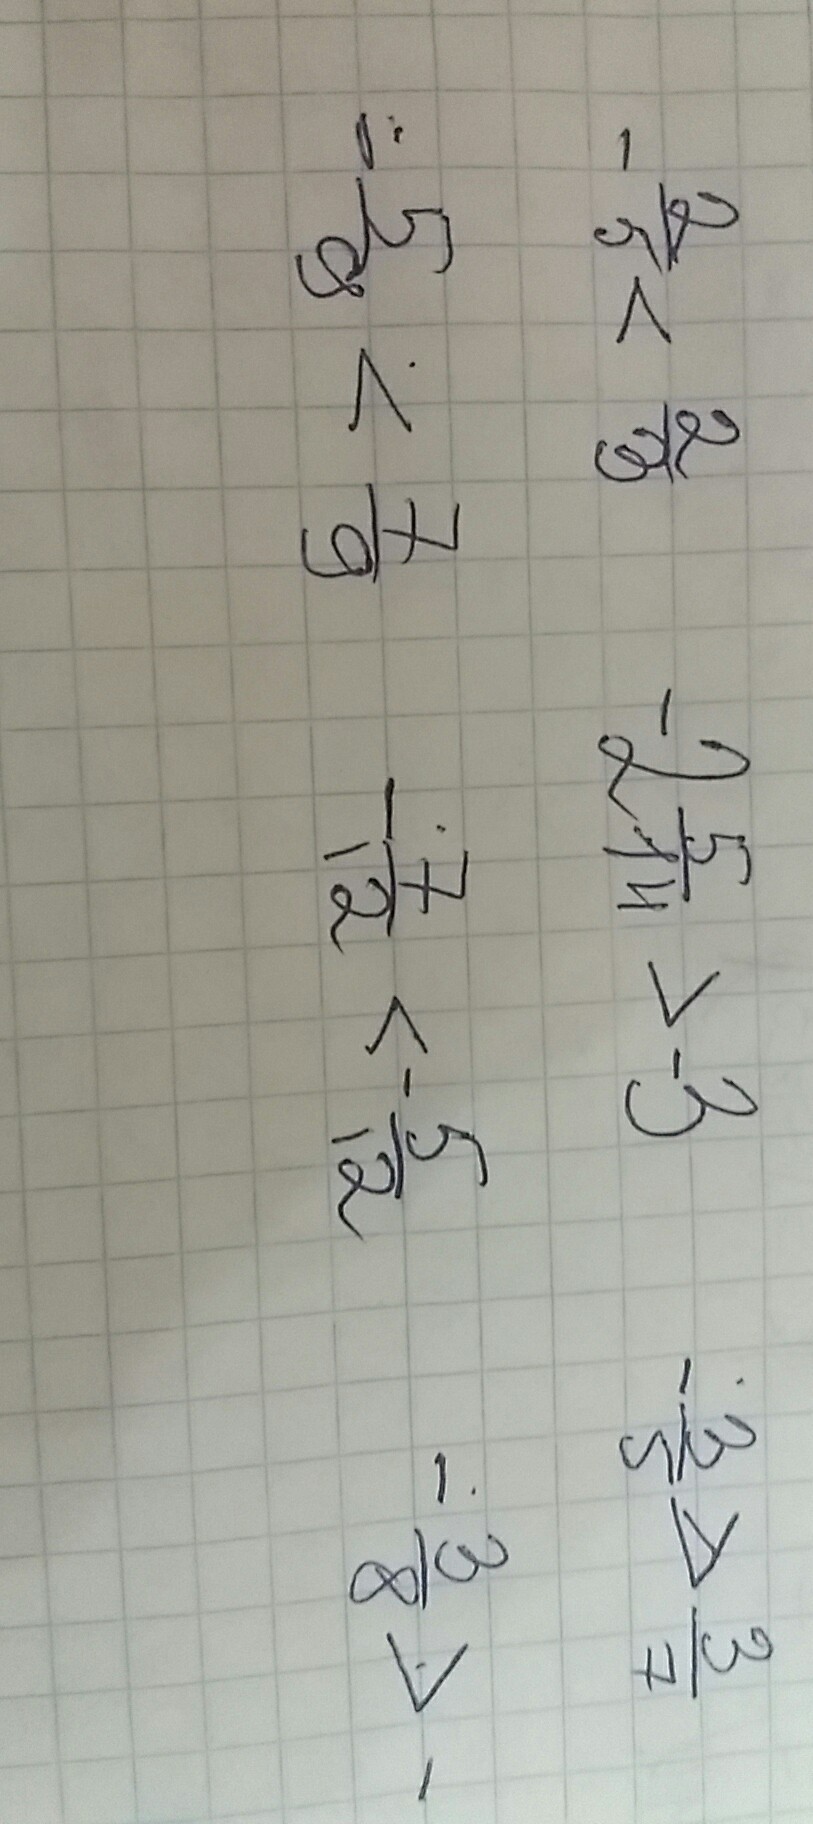 -2/5 < 2/3   -2 5/14 > -3   -3/5 > 3/7
-5/8 < 7/9   -7/12 < -5/12   -3/8 > -